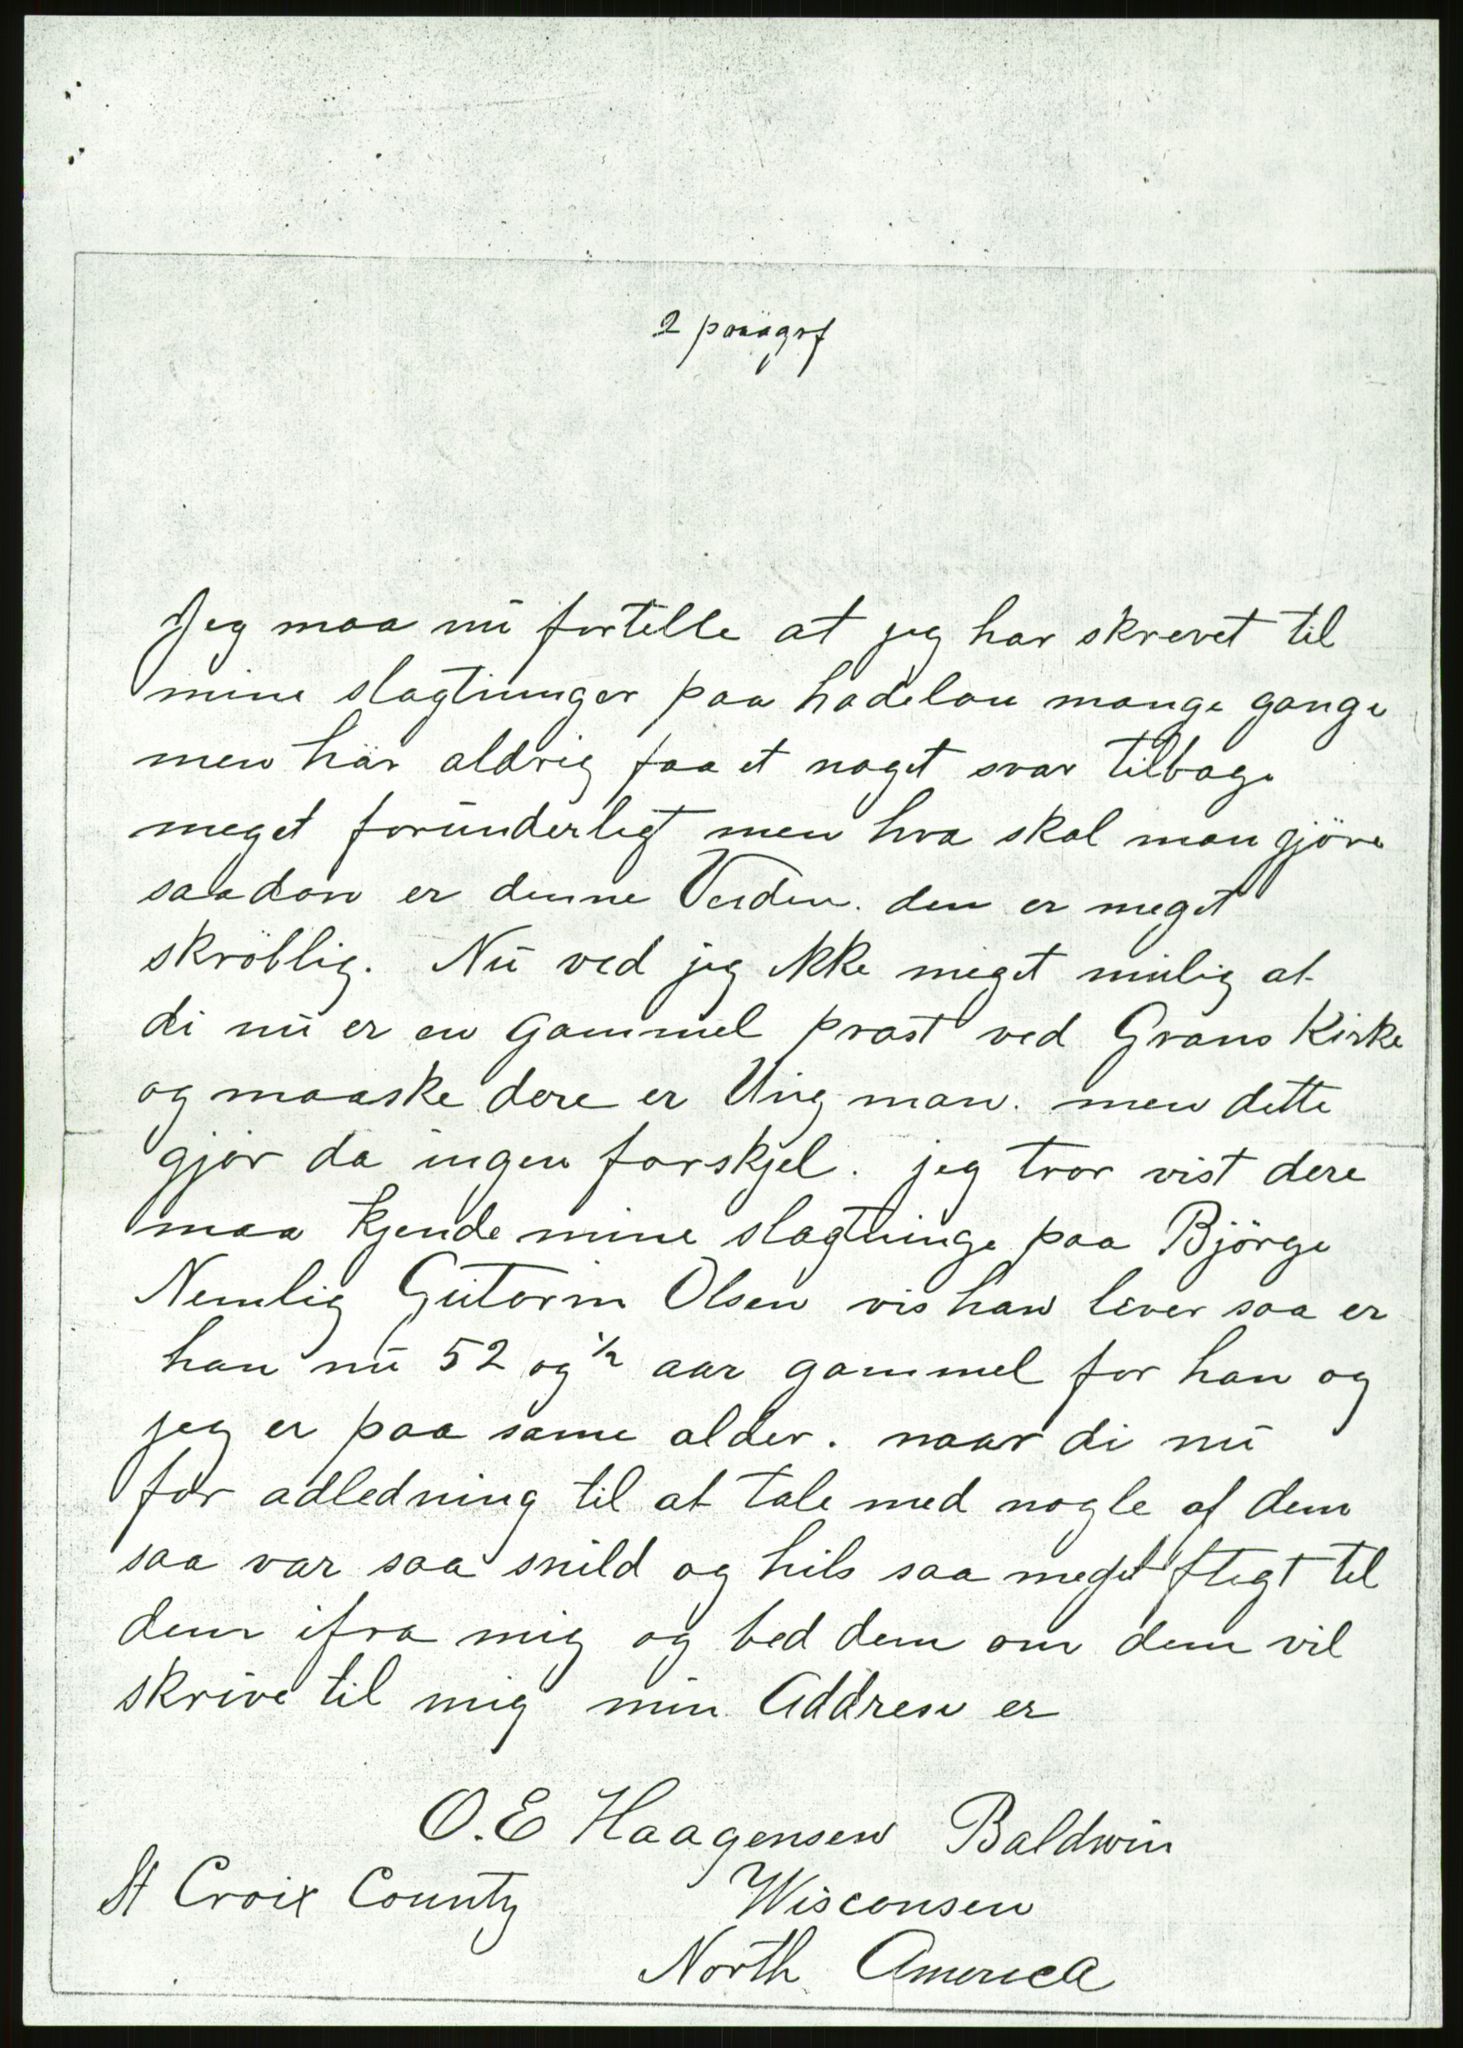 2 paragrf
Jeg maa nu fortelle at jeg har skrevet til
mine slagtninger paa hadelan mange gange
men har aldrig faaet noget svar tilbage
meget forunderligt men hva skal man gjöre
saadan er denne Verden. den er meget
skröblig. Nu ved jeg ikke meget mulig at
di nu er en gammel prast ved Grans Kirke
og maaske dere er Ung man. men dette
gjör da ingen forskjel. jeg tror vist dere
maa kjende mine slagtninge paa Björge
Nemlig Gutorm Olsen vis han lever saa er
han nu 52 og ½ aar gammel for han og
jeg er paa same alder. naar di nu
for adledning til at tale med nogle af dem
saa var saa snild og hils saa meget flegt til
dem ifra mig og bed dem om dem vil
skrive til mig min Addrese er
O.E Haagensen Baldwin
St Croix County Wisconsen
North America